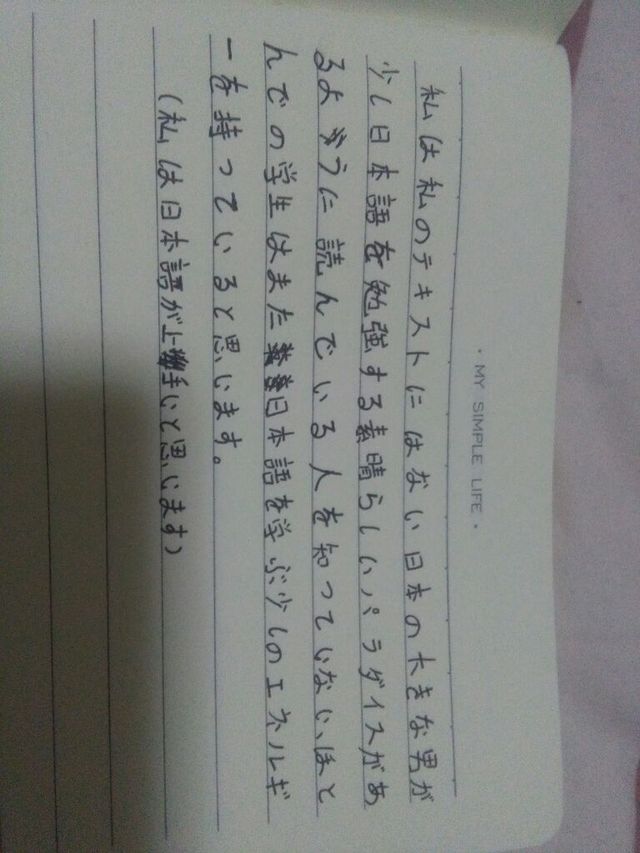 • MY SIMPLE LIFE •
私は私のテキストにはない日本の大きな男が
少し日本語を勉強する素晴らしいパラダイスがあ
るように読んでいる人を知っていない、ほと
んでの学生はまた日本語を学ぶ少しのエネルギ
ーを持っていると思います。
(私は日本語が上手いと思います)